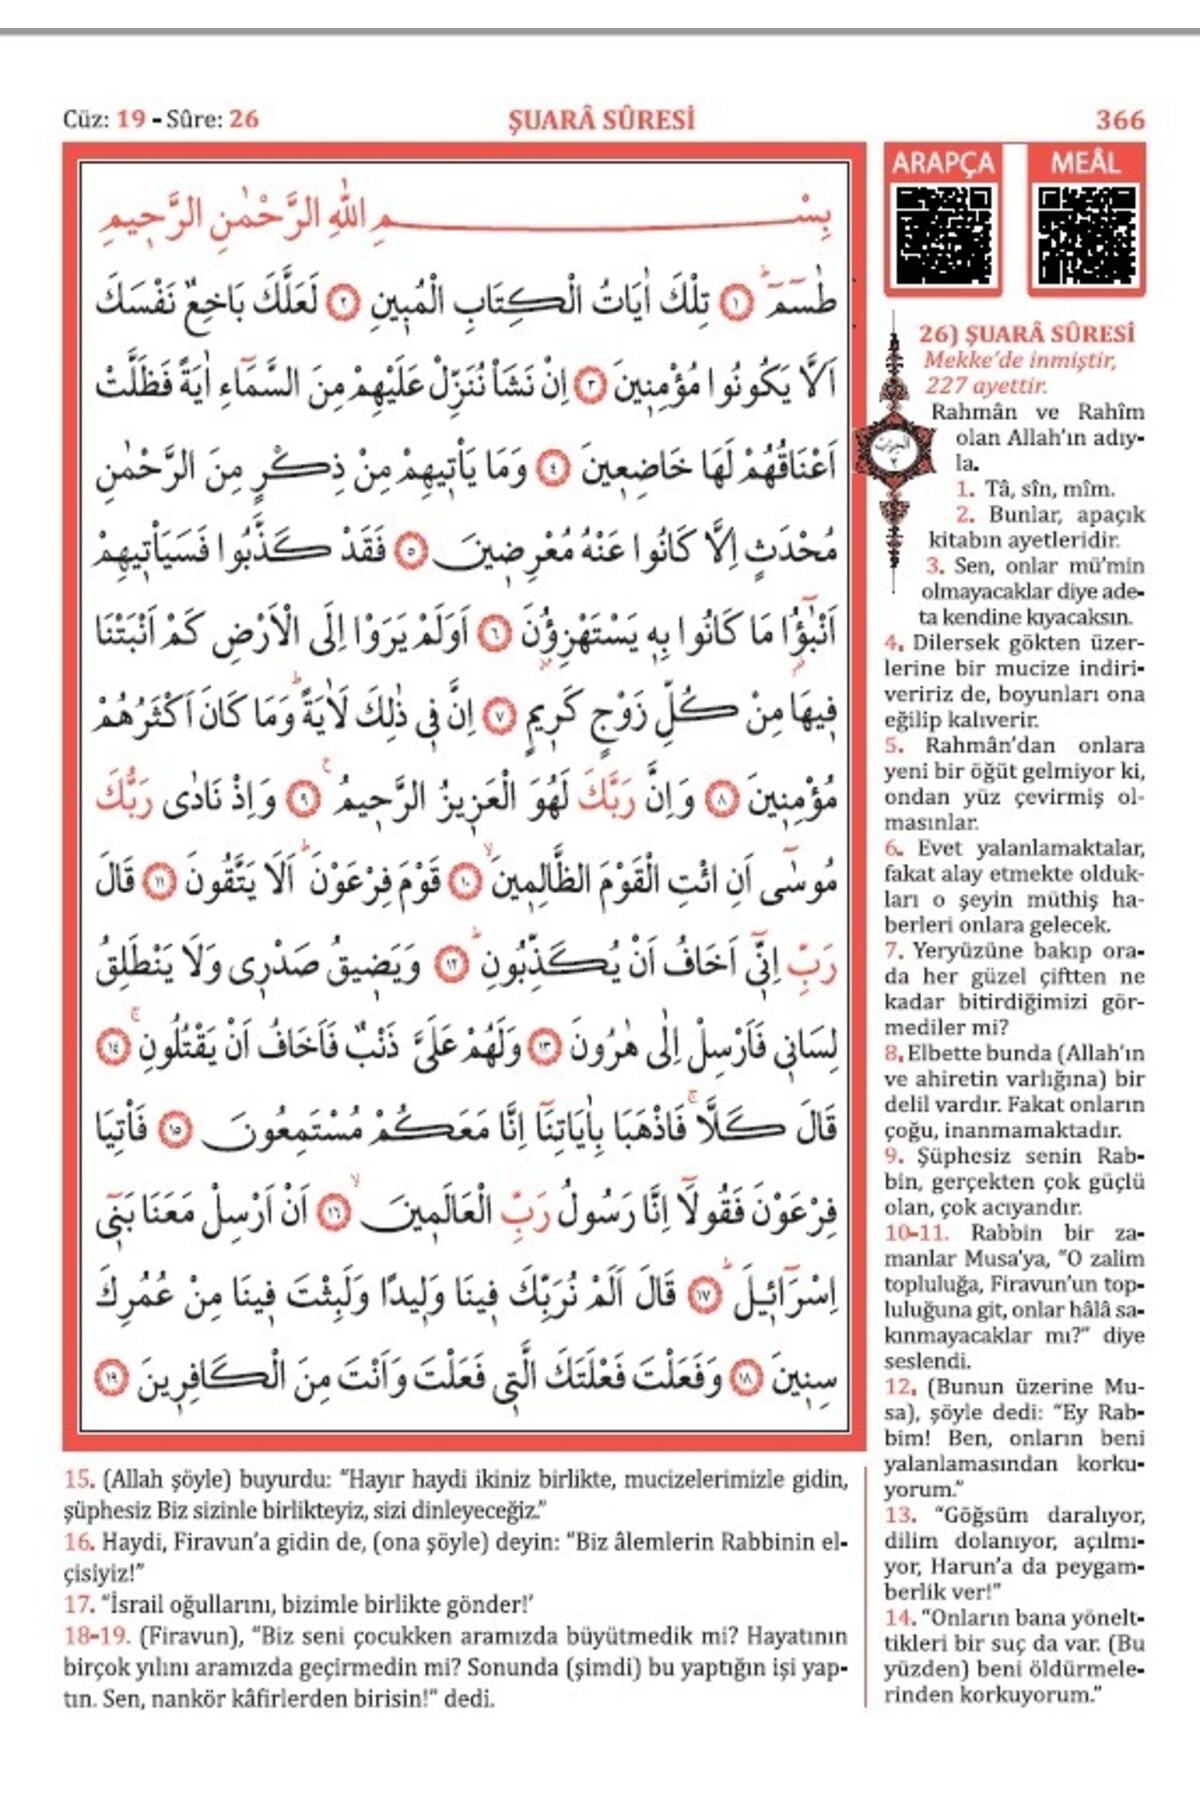 Cüz: 19 - Sûre: 26 ŞUARÂ SÛRESİ 366
بِسْمِ اللّٰهِ الرَّحْمٰنِ الرَّح۪يمِ
طٰسٓمٓ ۜ ﴿١﴾ تِلْكَ اٰيَاتُ الْكِتَابِ الْمُب۪ينِ ﴿٢﴾ لَعَلَّكَ بَاخِعٌ نَفْسَكَ
اَلَّا يَكُونُوا مُؤْمِن۪ينَ ﴿٣﴾ اِنْ نَشَأْ نُنَزِّلْ عَلَيْهِمْ مِنَ السَّمَٓاءِ اٰيَةً فَظَلَّتْ
اَعْنَاقُهُمْ لَهَا خَاضِع۪ينَ ﴿٤﴾ وَمَا يَأْت۪يهِمْ مِنْ ذِكْرٍ مِنَ الرَّحْمٰنِ
مُحْدَثٍ اِلَّا كَانُوا عَنْهُ مُعْرِض۪ينَ ﴿٥﴾ فَقَدْ كَذَّبُوا فَسَيَأْت۪يهِمْ
اَنْبٰٓؤُ۬ا مَا كَانُوا بِه۪ يَسْتَهْزِؤُ۫نَ ﴿٦﴾ اَوَلَمْ يَرَوْا اِلَى الْاَرْضِ كَمْ اَنْبَتْنَا
ف۪يهَا مِنْ كُلِّ زَوْجٍ كَر۪يمٍ ﴿٧﴾ اِنَّ ف۪ي ذٰلِكَ لَاٰيَةًۜ وَمَا كَانَ اَكْثَرُهُمْ
مُؤْمِن۪ينَ ﴿٨﴾ وَاِنَّ رَبَّكَ لَهُوَ الْعَز۪يزُ الرَّح۪يمُ ﴿٩﴾ وَاِذْ نَادٰى رَبُّكَ
مُوسٰٓى اَنِ ائْتِ الْقَوْمَ الظَّالِم۪ينَۙ ﴿١٠﴾ قَوْمَ فِرْعَوْنَۜ اَلَا يَتَّقُونَ ﴿١١﴾ قَالَ
رَبِّ اِنّ۪ٓي اَخَافُ اَنْ يُكَذِّبُونِۜ ﴿١٢﴾ وَيَض۪يقُ صَدْر۪ي وَلَا يَنْطَلِقُ
لِسَان۪ي فَاَرْسِلْ اِلٰى هٰرُونَ ﴿١٣﴾ وَلَهُمْ عَلَيَّ ذَنْبٌ فَاَخَافُ اَنْ يَقْتُلُونِۚ ﴿١٤﴾
قَالَ كَلَّاۚ فَاذْهَبَا بِاٰيَاتِنَٓا اِنَّا مَعَكُمْ مُسْتَمِعُونَ ﴿١٥﴾ فَأْتِيَا
فِرْعَوْنَ فَقُولَٓا اِنَّا رَسُولُ رَبِّ الْعَالَم۪ينَۙ ﴿١٦﴾ اَنْ اَرْسِلْ مَعَنَا بَن۪ٓي
اِسْرَٓاء۪يلَۜ ﴿١٧﴾ قَالَ اَلَمْ نُرَبِّكَ ف۪ينَا وَل۪يدًا وَلَبِثْتَ ف۪ينَا مِنْ عُمُرِكَ
سِن۪ينَ ﴿١٨﴾ وَفَعَلْتَ فَعْلَتَكَ الَّت۪ي فَعَلْتَ وَاَنْتَ مِنَ الْكَافِر۪ينَ ﴿١٩﴾
ARAPÇA MEÂL
26) ŞUARÂ SÛRESİ
Mekke’de inmiştir,
227 ayettir.
Rahmân ve Rahîm
olan Allah’ın adıy-
la.
1. Tâ, sîn, mîm.
2. Bunlar, apaçık
kitabın ayetleridir.
3. Sen, onlar mü’min
olmayacaklar diye ade-
ta kendine kıyacaksın.
4. Dilersek gökten üzer-
lerine bir mucize indiri-
veririz de, boyunları ona
eğilip kalıverir.
5. Rahmân’dan onlara
yeni bir öğüt gelmiyor ki,
ondan yüz çevirmiş ol-
masınlar.
6. Evet yalanlamaktalar,
fakat alay etmekte olduk-
ları o şeyin müthiş ha-
berleri onlara gelecek.
7. Yeryüzüne bakıp ora-
da her güzel çiftten ne
kadar bitirdiğimizi gör-
mediler mi?
8. Elbette bunda (Allah’ın
ve ahiretin varlığına) bir
delil vardır. Fakat onların
çoğu, inanmamaktadır.
9. Şüphesiz senin Rab-
bin, gerçekten çok güçlü
olan, çok acıyandır.
10-11. Rabbin bir za-
manlar Musa’ya, “O zalim
topluluğa, Firavun’un top-
luluğuna git, onlar hâlâ sa-
kınmayacaklar mı?” diye
seslendi.
12. (Bunun üzerine Mu-
sa), şöyle dedi: “Ey Rab-
bim! Ben, onların beni
yalanlamasından korku-
yorum.”
13. “Göğsüm daralıyor,
dilim dolanıyor, açılmı-
yor, Harun’a da peygam-
berlik ver!”
14. “Onların bana yönelt-
tikleri bir suç da var. (Bu
yüzden) beni öldürmele-
rinden korkuyorum.”
15. (Allah şöyle) buyurdu: “Hayır haydi ikiniz birlikte, mucizelerimizle gidin,
şüphesiz Biz sizinle birlikteyiz, sizi dinleyeceğiz.”
16. Haydi, Firavun’a gidin de, (ona şöyle) deyin: “Biz âlemlerin Rabbinin el-
çisiyiz!”
17. “İsrail oğullarını, bizimle birlikte gönder!’
18-19. (Firavun), “Biz seni çocukken aramızda büyütmedik mi? Hayatının
birçok yılını aramızda geçirmedin mi? Sonunda (şimdi) bu yaptığın işi yap-
tın. Sen, nankör kâfirlerden birisin!” dedi.